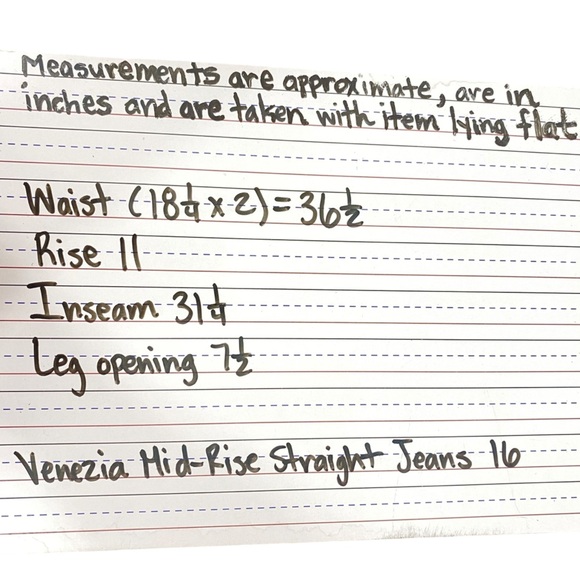 Measurements are approximate, are in
inches and are taken with item lying flat
Waist (18 1/4 x 2) = 36 1/2
Rise 11
Inseam 31 1/4
Leg opening 7 1/2
Venezia Mid-Rise Straight Jeans 16